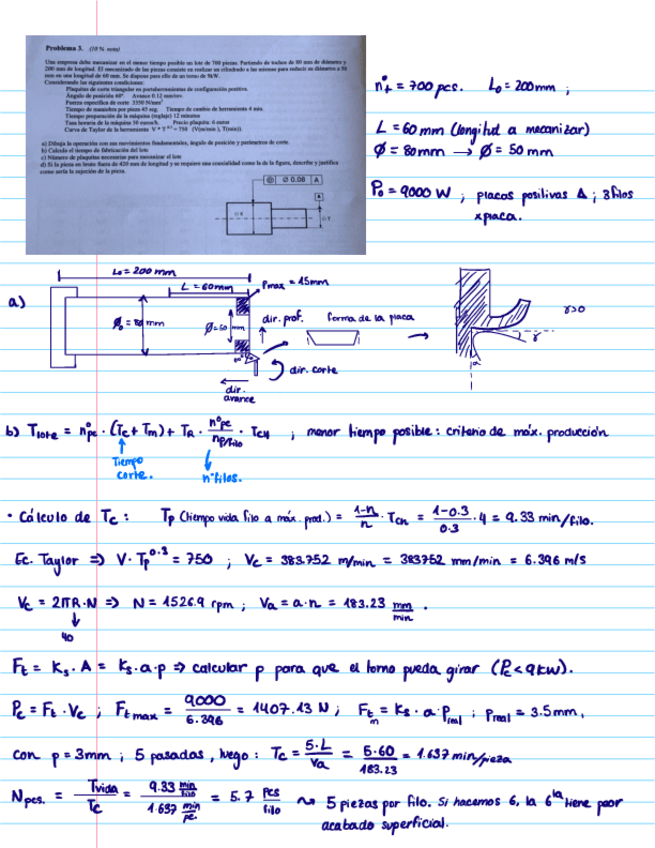 Problema 3. (10 % nota)
Una empresa debe mecanizar en el menor tiempo posible un lote de 700 piezas. Partiendo de tochos de 80 mm de diámetro y
200 mm de longitud. El mecanizado de las piezas consiste en realizar un cilindrado a las mismas para reducir su diámetro a 50
mm en una longitud de 60 mm. Se dispone para ello de un torno de 9kW.
Considerando las siguientes condiciones:
Plaquitas de corte triangular en portaherramientas de configuración positiva.
Ángulo de posición 60º Avance 0.12 mm/rev.
Fuerza específica de corte 3350 N/mm²
Tiempo de maniobra por pieza 45 seg. Tiempo de cambio de herramienta 4 min.
Tiempo preparación máquina (reglaje) 12 minutos
Tasa horaria de la máquina 50 euros/h. Precio plaquita: 6 euros
Curva de Taylor de la herramienta V * T^0.3 = 750 (V(m/min), T(min))
a) Dibuja la operación con sus movimientos fundamentales, ángulo de posición y parámetros de corte.
b) Calcula el tiempo de fabricación del lote
c) Número de plaquitas necesarias para mecanizar el lote
d) Si la pieza en bruto fuera de 420 mm de longitud y se requiere una coaxialidad como la de la figura, describe y justifica
como sería la sujeción de la pieza.
Ø 0.08 A
A
n°t = 700 pcs. L₀ = 200mm ;
L = 60 mm (longitud a mecanizar)
Ø = 80mm → Ø = 50 mm
P₀ = 9000 W ; placas positivas Δ ; 3 filos
x placa.
a)
L₀ = 200 mm
L = 60mm
Pmax = 15mm
Ø₀ = 80 mm
Ø = 50 mm
dir. prof.
forma de la placa
dir. corte
dir.
avance
γ>0
γ
α
b) Tlote = n°pc · (Tc + Tm) + TR · n°pc / np/filo · TCH ; menor tiempo posible : criterio de máx. producción
Tiempo
corte.
n°filos.
• Cálculo de Tc : Tp (tiempo vida filo a máx. prod.) = 1-n / n · TCH = 1-0.3 / 0.3 · 4 = 9.33 min/filo.
Ec. Taylor ⇒ V · Tp^0.3 = 750 ; Vc = 383.752 m/min = 383752 mm/min = 6.396 m/s
Vc = 2πR·N ⇒ N = 1526.9 rpm ; Va = a·n = 183.23 mm/min .
40
Ft = Ks · A = Ks · a · p ⇒ calcular p para que el torno pueda girar (Pc < 9kW).
Pc = Ft · Vc ; Ft max = 9000 / 6.396 = 1407.13 N ; Ftm = Ks · a · Preal ; Preal = 3.5mm,
con p = 3mm ; 5 pasadas , luego : Tc = 5·L / Va = 5·60 / 183.23 = 1.637 min/pieza
Npcs. = Tvida / Tc = 9.33 min/filo / 1.637 min/pc. = 5.7 pcs/filo ⇝ 5 piezas por filo. Si hacemos 6, la 6ta tiene peor
acabado superficial.